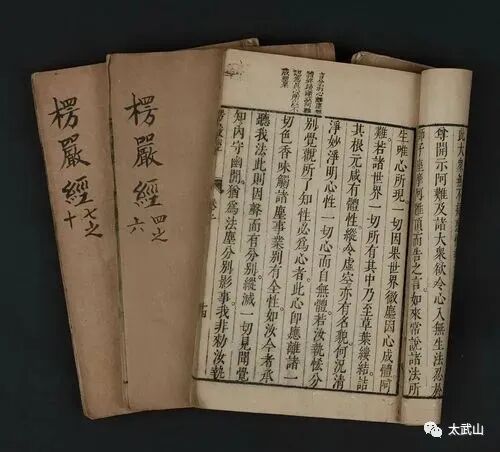 楞嚴經
七之
十
楞嚴經
四之
六
尊開示阿難及諸大眾欲令心入無生法忍於
師子座摩阿難頂而告之言如來常說諸法所
生唯心所現一切因果世界微塵因心成體阿
難若諸世界一切所有其中乃至草葉縷結詰
其根元咸有體性縱令虛空亦有名貌何況清
淨妙淨明心性一切心而自無體若汝執恡分
別覺觀所了知性必為心者此心即應離諸一
切色香味觸諸塵事業別有全性如汝今者承
聽我法此則因聲而有分別縱滅一切見聞覺
知內守幽閒猶為法塵分別影事我非勑汝執
太武山